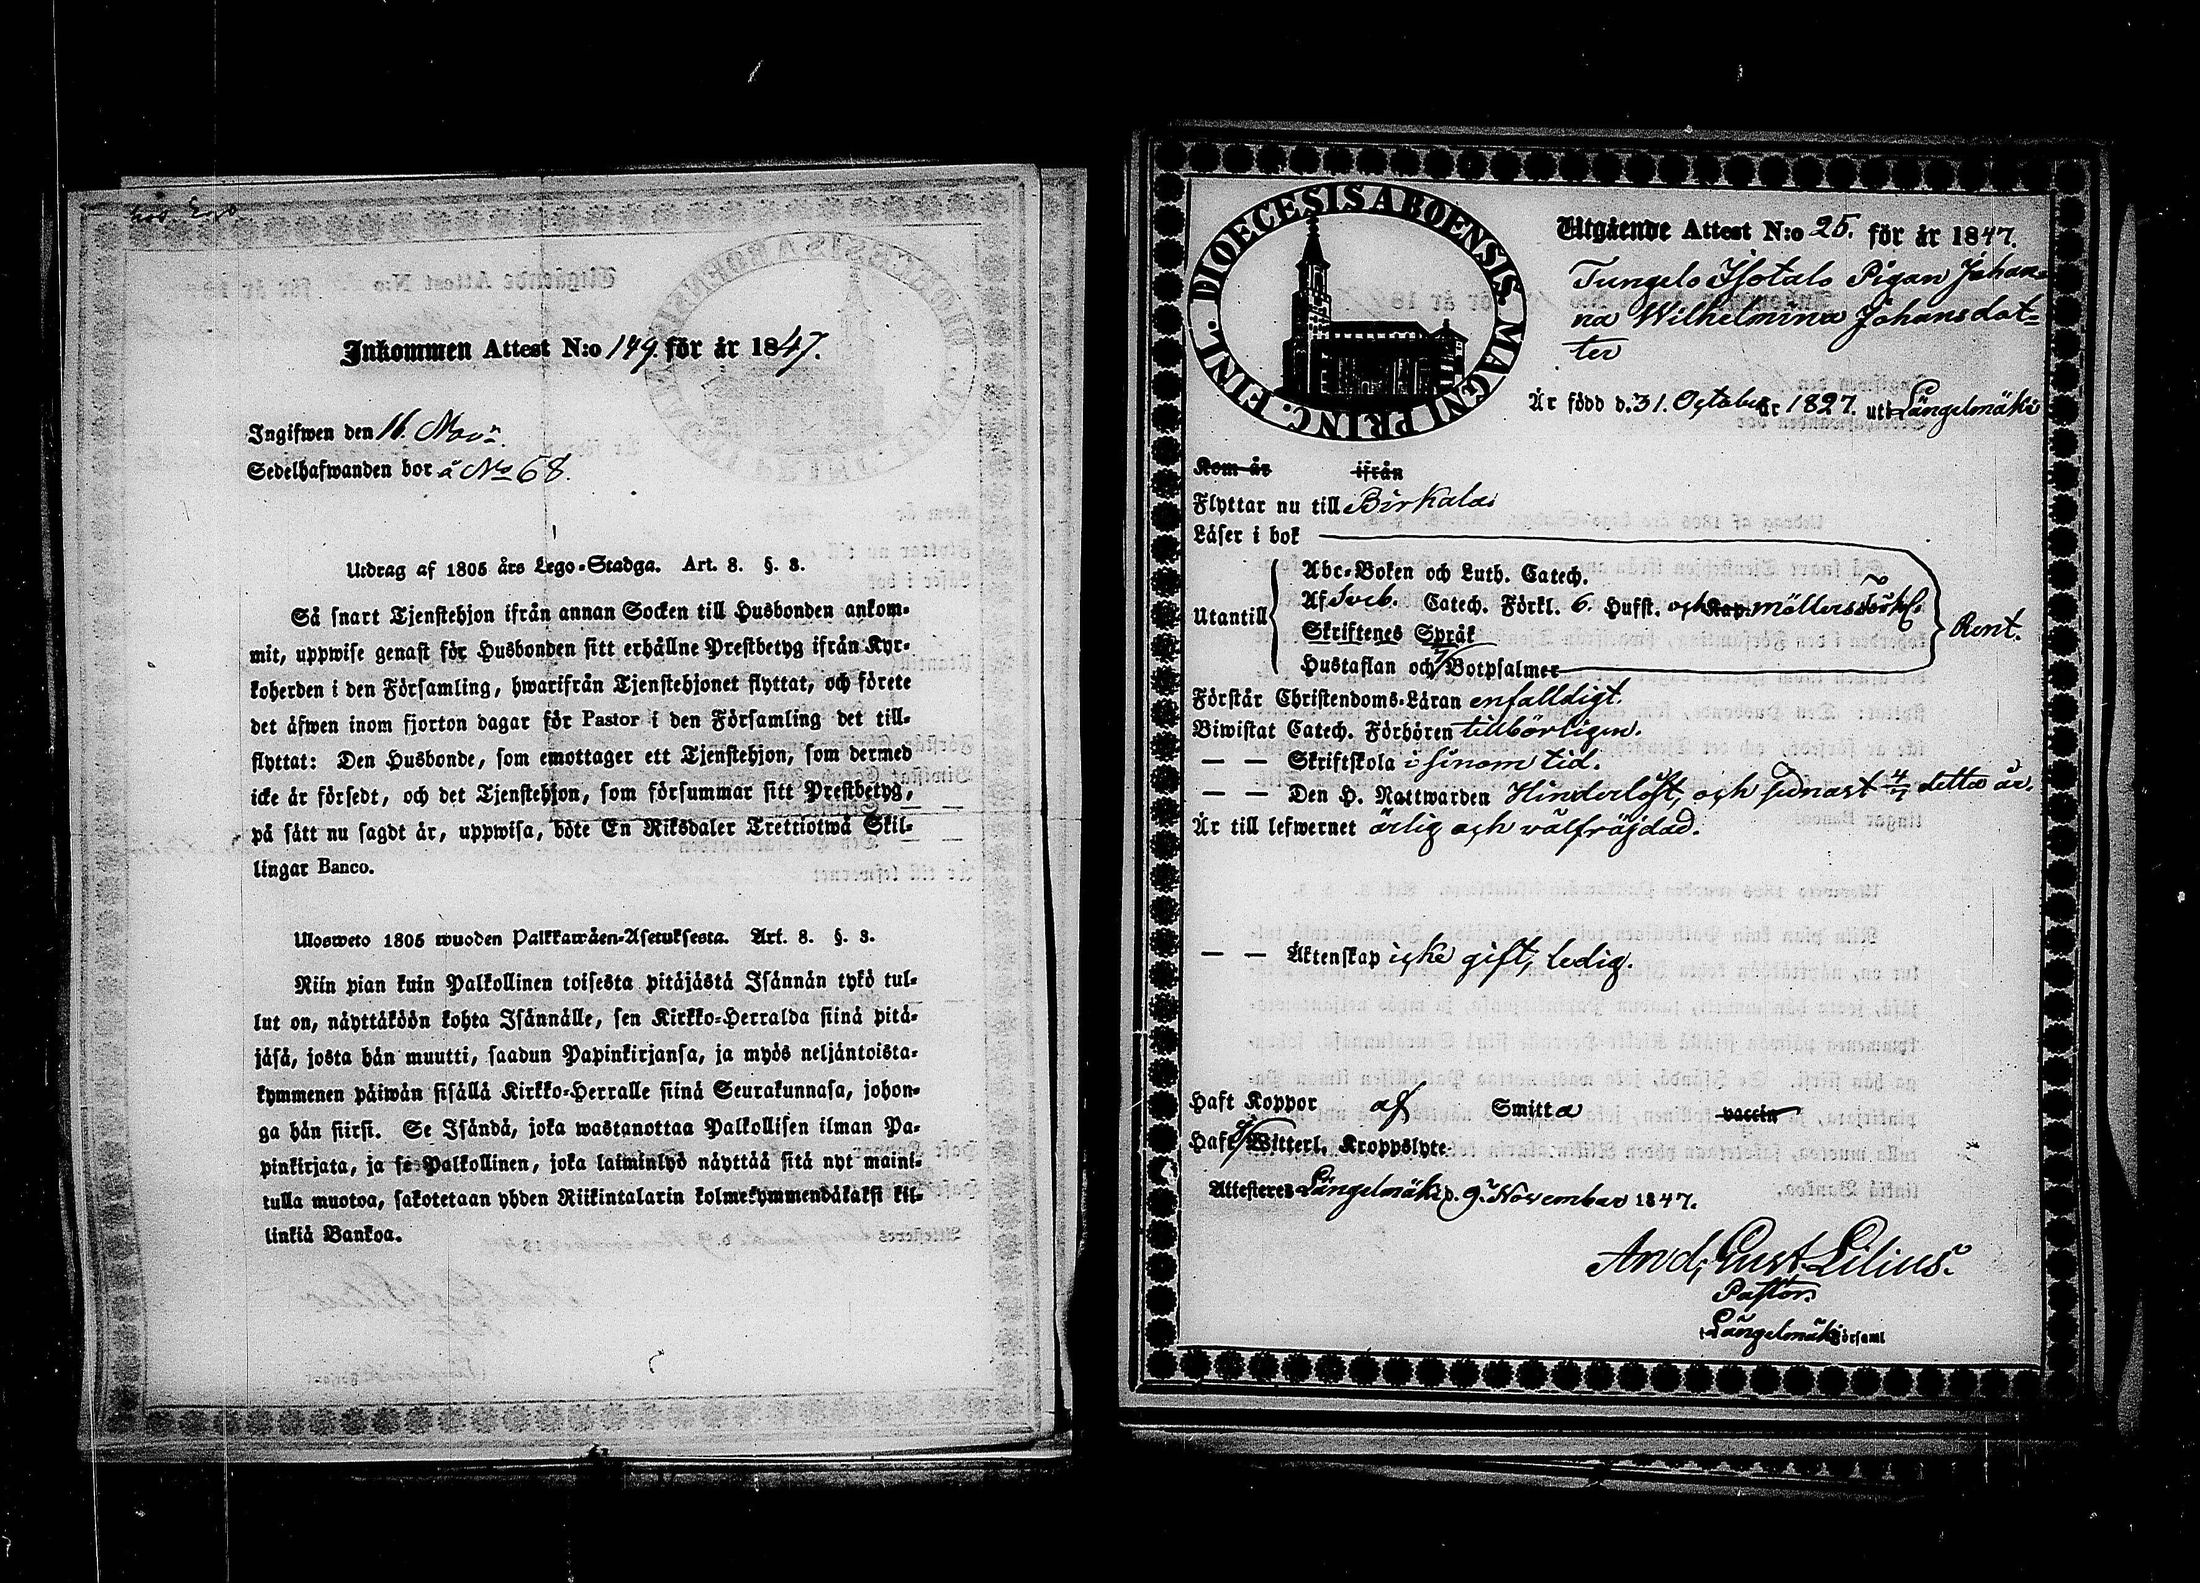 Inkommen Attest N:o 149. för år 1847.
Ingifwen den 16. Nov:
Sedelhafwanden bor å No 68.
Utdrag af 1805 års Lego-Stadga. Art. 8. §. 3.
Så snart Tjenstehjon ifrån annan Socken till Husbonden ankom-
mit, uppwise genast för Husbonden sitt erhållne Prestbetyg ifrån Kyr-
koherden i den Församling, hwarifrån Tjenstehjonet flyttat, och förete
det äfwen inom fjorton dagar för Pastor i den Församling det till-
flyttat: Den Husbonde, som emottager ett Tjenstehjon, som dermed
icke är försedt, och det Tjenstehjon, som försummar sitt Prestbetyg,
på sått nu sagdt är, uppwisa, böte En Riksdaler Trettiotwå Skil-
lingar Banco.
Ulosweto 1805 wuoden Palkkawäen-Asetuksesta. Art. 8. §. 3.
Niin pian kuin Palkollinen toisesta pitäjästä Isännän tykö tul-
lut on, näyttäköön kohta Isännälle, sen Kirkko-Herralda siinä pitä-
jäsä, josta hän muutti, saadun Papinkirjansa, ja myös neljäntoista-
kymmenen päiwän sisällä Kirkko-Herralle siinä Seurakunnasa, johon-
ga hän siirsi. Se Isändä, joka wastanottaa Palkollisen ilman Pa-
pinkirjata, ja se Palkollinen, joka laiminlyö näyttää sitä nyt maini-
tulla muotoa, sakotetaan yhden Riikintalarin kolmekymmendäkaksi kil-
linkiä Bankoa.
DIOECESIS ABOENSIS. MAGNI PRINC. FINL.
Utgående Attest N:o 25. för år 1847.
Tungelo Isotalo Pigan Johan-
na Wilhelmina Johansdot-
ter
Är född d. 31. October år 1827. uti Längelmäki
Kom år ifrån
Flyttar nu till Birkala
Läser i bok
Abc-Boken och Luth. Catech.
Utantill Af Sveb. Catech. Förkl. 6. Hufst. och Kap. möllers
Skriftenes Språk
Hustaflan och 7 Botpsalmer
Rent.
Förstår Christendoms-Läran enfalldigt.
Biwistat Catech. Förhören tillbörligen.
— — Skriftskola i sinom tid.
— — Den H. Nattwarden Hinderlöst, och sednast 4/7 detta år.
Är till lefwernet ärlig och välfräjdad.
— — Äktenskap icke gift, ledig.
Haft Koppor af Smitta vaccin
Haft Witterl. Kroppslyte
Attesteres Längelmäki d. 9. November 1847.
And. Gust. Lilius.
Pastor.
i Längelmäki Församl